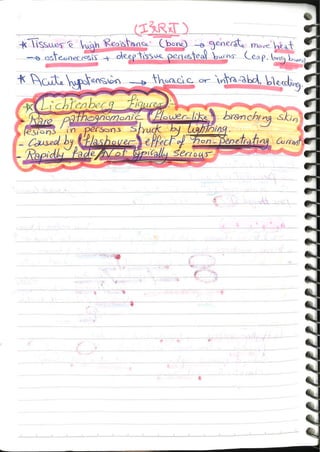 * Tissues c̄ high Resistance (bone) → generate more heat
→ osteonecrosis + deep tissue periosteal burns (esp. long bones)
* Acute hypotension → thoracic or intra-abd. bleeding
* Lichtenberg Figures
Rare pathognomonic flower-like branching skin
lesions in persons struck by lightning.
- Caused by flashover effect of non-penetrating current
- Rapidly fade / Not typically serious